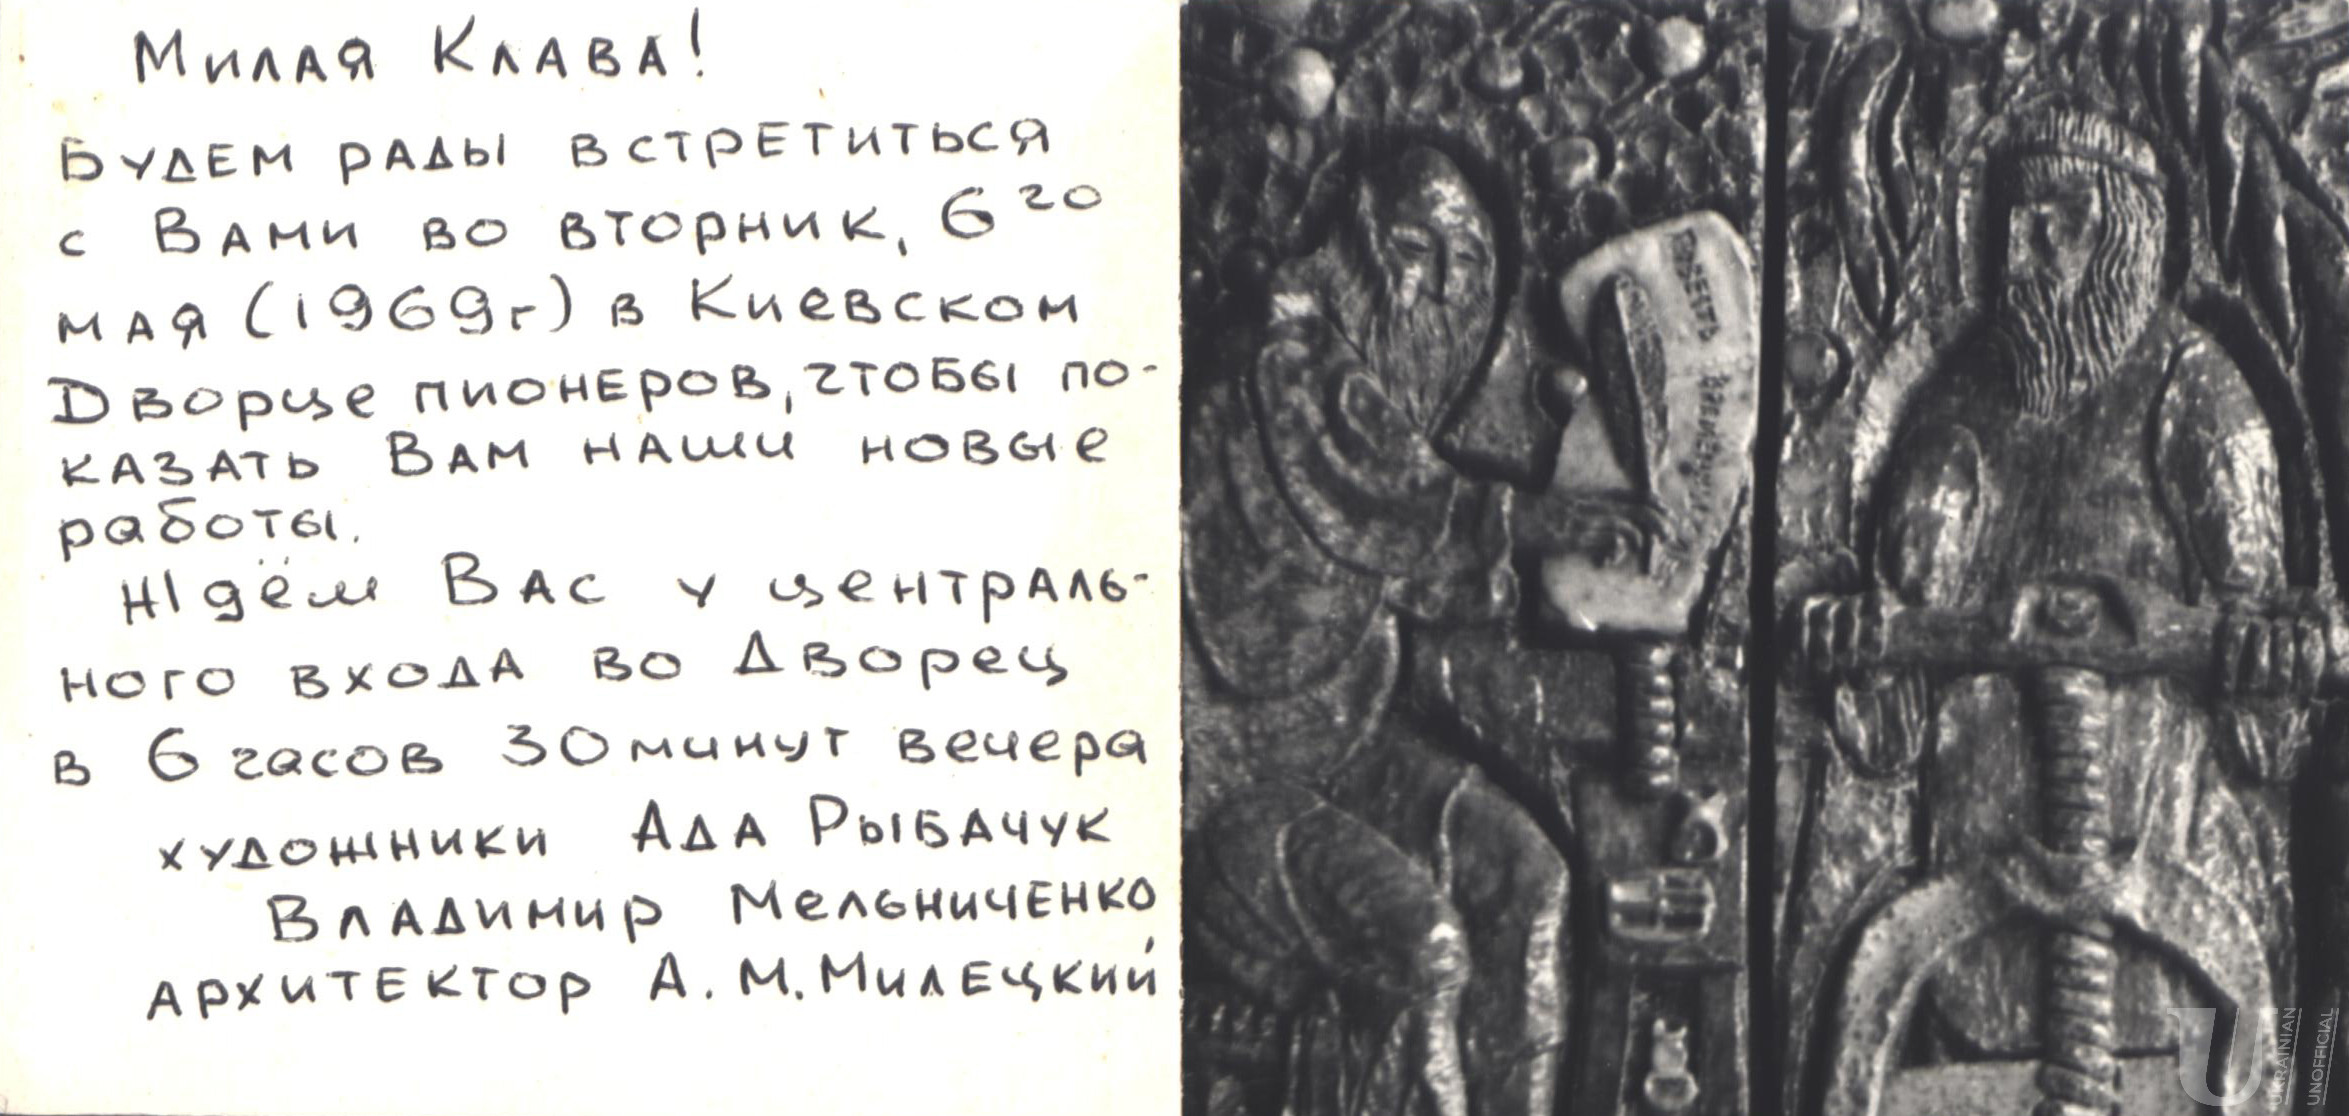 Милая Клава!
Будем рады встретиться
с Вами во вторник, 6го
мая (1969г) в Киевском
Дворце пионеров, чтобы по-
казать Вам наши новые
работы.
Ждём Вас у централь-
ного входа во Дворец
в 6 часов 30 минут вечера
художники Ада Рыбачук
Владимир Мельниченко
архитектор А. М. Милецкий
UKRAINIAN
UNOFFICIAL